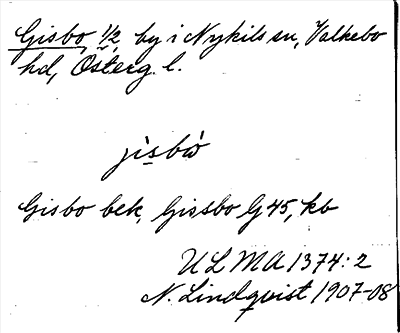 Gisbo, 1/2, by i Nykils sn, Valkebo
hd, Österg. l.
jìsbẁ
Gisbo bek. Gissbo G 45, kb
ULMA 1374:2
N. Lindqvist 1907-08